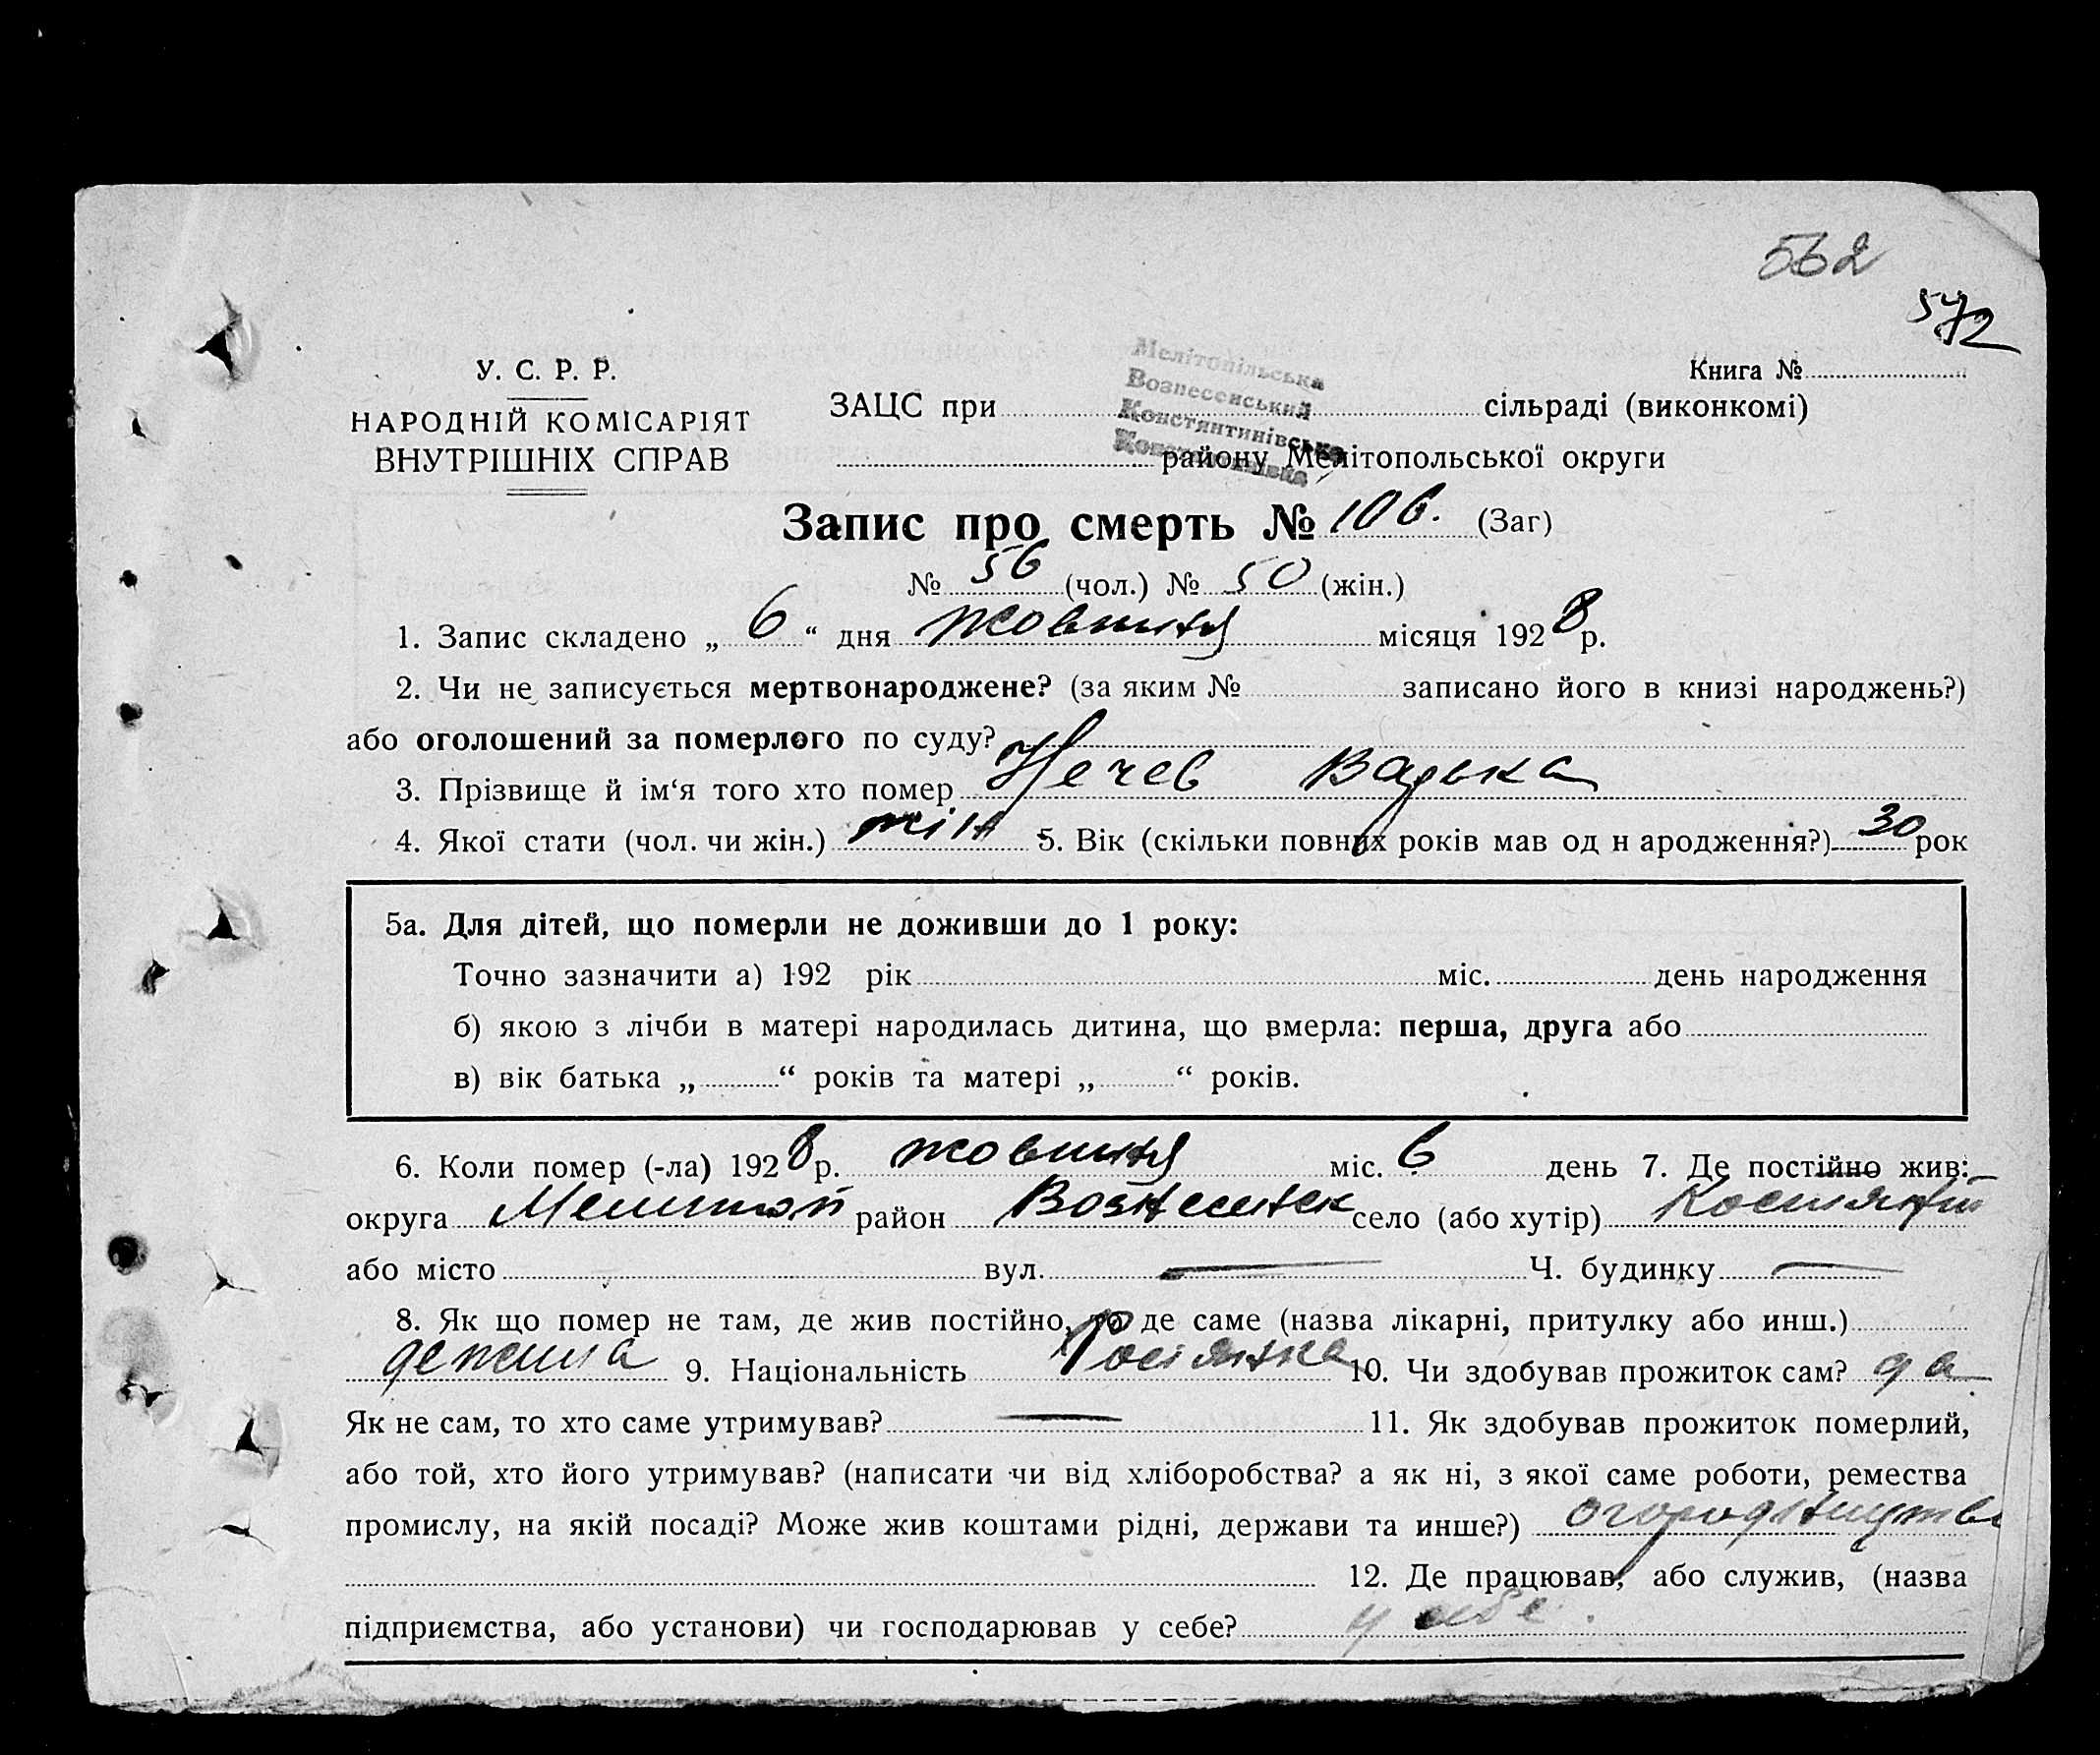 562
572
У. С. Р. Р.
НАРОДНІЙ КОМІСАРІЯТ
ВНУТРІШНІХ СПРАВ
Книга №
Мелітопільська
Вознесенський
Констянтинівська
ЗАЦС при сільраді (виконкомі)
району Мелітопольської округи
Запис про смерть № 106. (Заг)
№ 56 (чол.) № 50 (жін.)
1. Запис складено „ 6 “ дня жовтня місяця 1928 р.
2. Чи не записується мертвонароджене? (за яким № записано його в книзі народжень?)
або оголошений за померлого по суду?
3. Прізвище й ім‘я того хто помер Нечев
4. Якої стати (чол. чи жін.) жін 5. Вік (скільки повних років мав од н ародження?) 30 рок
5а. Для дітей, що померли не доживши до 1 року:
Точно зазначити а) 192 рік міс. день народження
б) якою з лічби в матері народилась дитина, що вмерла: перша, друга або
в) вік батька „ “ років та матері „ “ років.
6. Коли помер (-ла) 1928 р. жовтня міс. 6 день 7. Де постійно жив:
округа Мелитоп район Вознесенск село (або хутір) Костянтин
або місто вул. — Ч. будинку —
8. Як що помер не там, де жив постійно, то де саме (назва лікарні, притулку або инш.)
де жила 9. Національність Росіянка 10. Чи здобував прожиток сам? да
Як не сам, то хто саме утримував? — 11. Як здобував прожиток померлий,
або той, хто його утримував? (написати чи від хліборобства? а як ні, з якої саме роботи, ремества
промислу, на якій посаді? Може жив коштами рідні, держави та инше?) огородництво
12. Де працював, або служив, (назва
підприємства, або установи) чи господарював у себе? у себе.